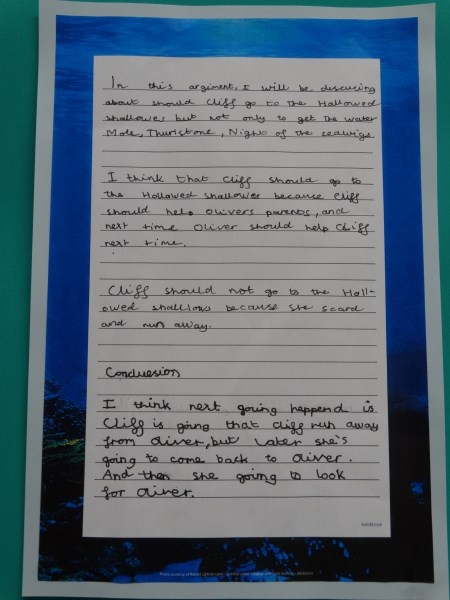 In this argiment, I will be discusing
about should Cliff go to the Hallowed
shallowes but not only to get the water
Mole, Thurlstone, Night of the seawigs
I think that Cliff should go to
the Hollowed shallowes because Cliff
should help Olivers parents, and
next time Oliver should help Cliff
next time.
Cliff should not go to the Holl-
owed shallows because she scard
and run away.
Conclusion
I think next going happend is
Cliff is going that Cliff run away
from Oliver, but later she's
going to come back to Oliver.
And then she going to look
for Oliver.